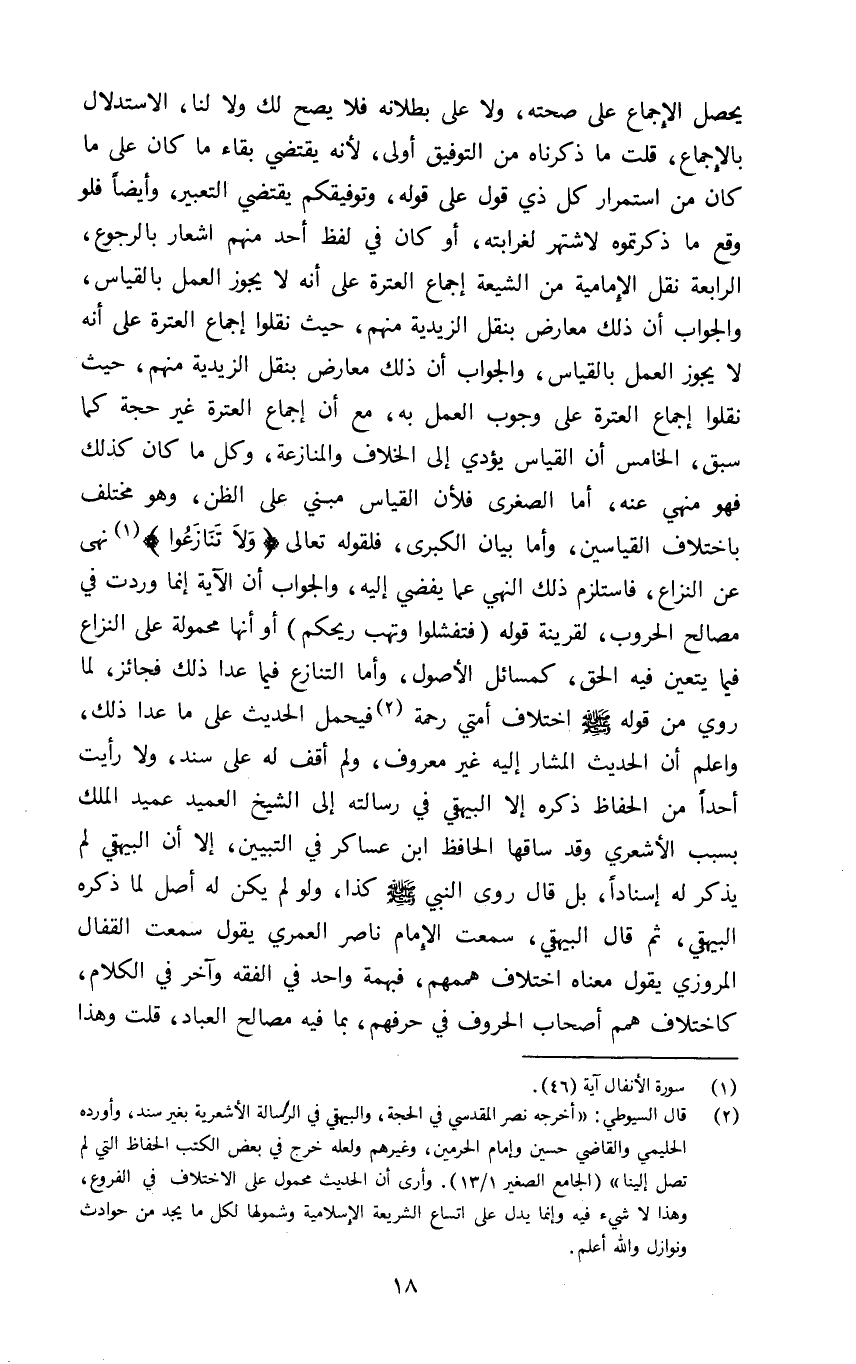 يحصل الإجماع على صحته، ولا على بطلانه فلا يصح لك ولا لنا، الاستدلال
بالإجماع، قلت ما ذكرناه من التوفيق أولى، لأنه يقتضي بقاء ما كان على ما
كان من استمرار كل ذي قول على قوله، وتوفيقكم يقتضي التعبير، وأيضاً فلو
وقع ما ذكرتموه لاشتهر لغرابته، أو كان في لفظ أحد منهم اشعار بالرجوع،
الرابعة نقل الإمامية من الشيعة إجماع العترة على أنه لا يجوز العمل بالقياس،
والجواب أن ذلك معارض بنقل الزيدية منهم، حيث نقلوا إجماع العترة على أنه
لا يجوز العمل بالقياس، والجواب أن ذلك معارض بنقل الزيدية منهم، حيث
نقلوا إجماع العترة على وجوب العمل به، مع أن إجماع العترة غير حجة كما
سبق، الخامس أن القياس يؤدي إلى الخلاف والمنازعة، وكل ما كان كذلك
فهو منهي عنه، أما الصغرى فلأن القياس مبني على الظن، وهو مختلف
باختلاف القياسين، وأما بيان الكبرى، فلقوله تعالى ﴿ وَلاَ تَنَازَعُوا ﴾(١) نهى
عن النزاع، فاستلزم ذلك النهي عما يفضي إليه، والجواب أن الآية إنما وردت في
مصالح الحروب، لقرينة قوله (فتفشلوا وتهب ريحكم) أو أنها محمولة على النزاع
فيما يتعين فيه الحق، كمسائل الأصول، وأما التنازع فيما عدا ذلك فجائز، لما
روي من قوله ﷺ اختلاف أمتي رحمة (٢) فيحمل الحديث على ما عدا ذلك،
واعلم أن الحديث المشار إليه غير معروف، ولم أقف له على سند، ولا رأيت
أحداً من الحفاظ ذكره إلا البيهقي في رسالته إلى الشيخ العميد عميد الملك
بسبب الأشعري وقد ساقها الحافظ ابن عساكر في التبيين، إلا أن البيهقي لم
يذكر له إسناداً، بل قال روى النبي ﷺ كذا، ولو لم يكن له أصل لما ذكره
البيهقي، ثم قال البيهقي، سمعت الإمام ناصر العمري يقول سمعت القفال
المروزي يقول معناه اختلاف هممهم، فبهمة واحد في الفقه وآخر في الكلام،
كاختلاف همم أصحاب الحروف في حرفهم، بما فيه مصالح العباد، قلت وهذا
(١) سورة الأنفال آية (٤٦).
(٢) قال السيوطي: «أخرجه نصر المقدسي في الحجة، والبيهقي في الرسالة الأشعرية بغير سند، وأورده
الحليمي والقاضي حسين وإمام الحرمين، وغيرهم ولعله خرج في بعض الكتب الحفاظ التي لم
تصل إلينا» (الجامع الصغير ١٣/١). وأرى أن الحديث محمول على الاختلاف في الفروع،
وهذا لا شيء فيه وإنما يدل على اتساع الشريعة الإسلامية وشمولها لكل ما يجد من حوادث
ونوازل والله أعلم.
١٨